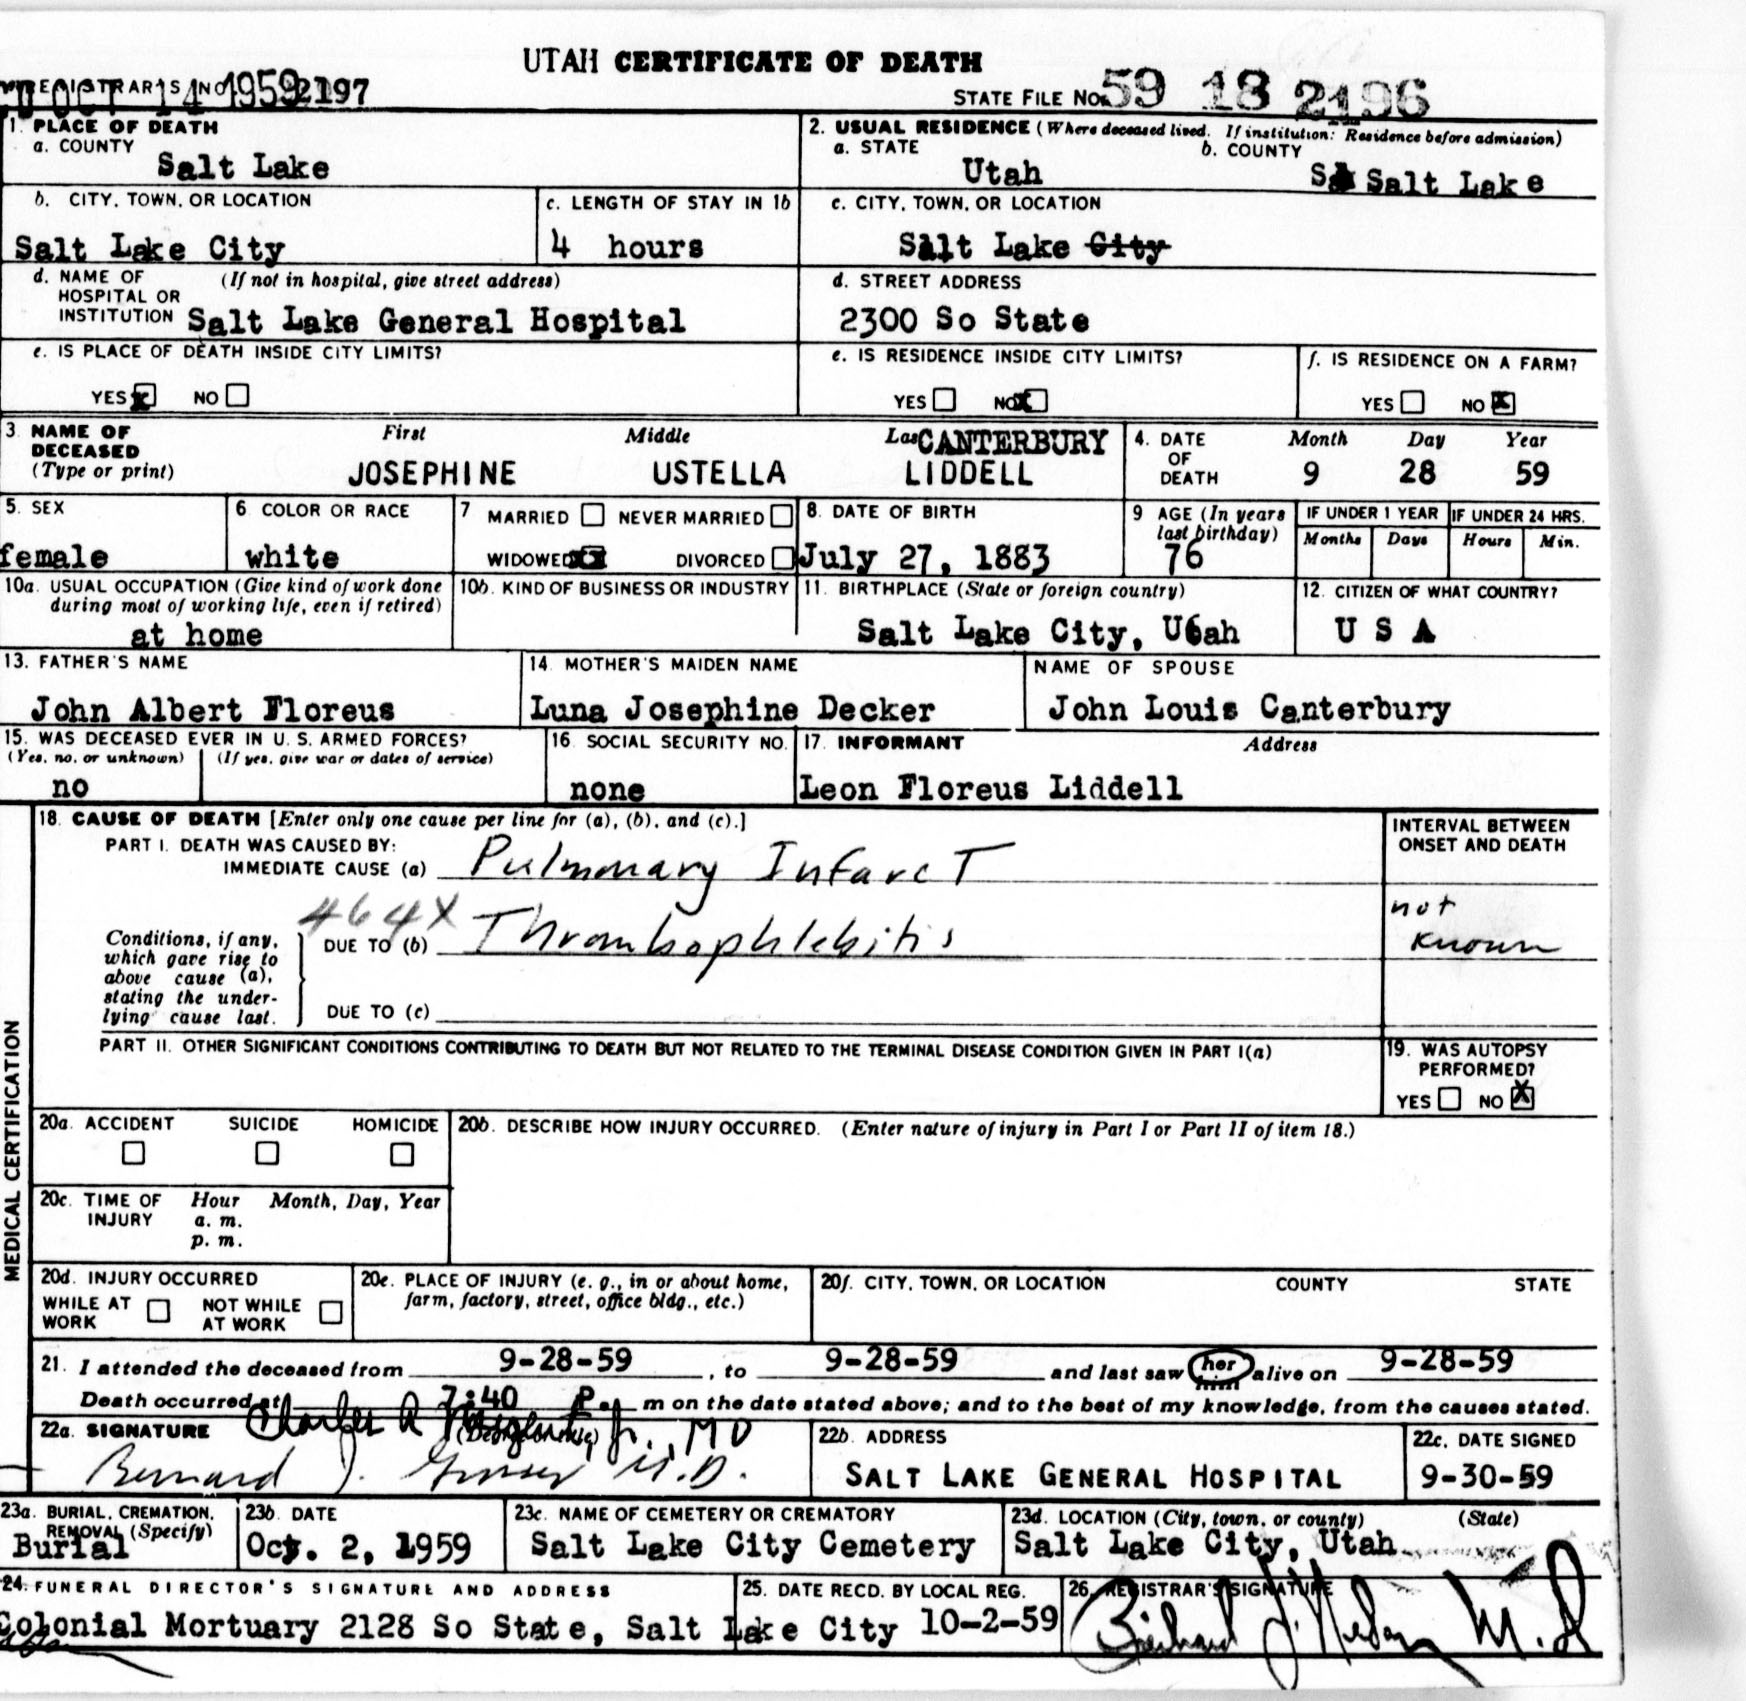 UTAH CERTIFICATE OF DEATH
REGISTRAR'S NO. 2197
OCT 14 1959
STATE FILE NO. 59 18 2196
1. PLACE OF DEATH
a. COUNTY
Salt Lake
2. USUAL RESIDENCE (Where deceased lived. If institution: Residence before admission)
a. STATE
Utah
b. COUNTY
Salt Lake
b. CITY, TOWN, OR LOCATION
Salt Lake City
c. LENGTH OF STAY IN 1b
4 hours
c. CITY, TOWN, OR LOCATION
Salt Lake City
d. NAME OF (If not in hospital, give street address)
HOSPITAL OR
INSTITUTION Salt Lake General Hospital
d. STREET ADDRESS
2300 So State
e. IS PLACE OF DEATH INSIDE CITY LIMITS?
YES x NO
e. IS RESIDENCE INSIDE CITY LIMITS?
YES NO x
f. IS RESIDENCE ON A FARM?
YES NO x
3. NAME OF
DECEASED
(Type or print)
First
JOSEPHINE
Middle
USTELLA
Last
CANTERBURY
LIDDELL
4. DATE
OF
DEATH
Month Day Year
9 28 59
5. SEX
female
6 COLOR OR RACE
white
7 MARRIED NEVER MARRIED
WIDOWED xx DIVORCED
8. DATE OF BIRTH
July 27, 1883
9 AGE (In years
last birthday)
76
IF UNDER 1 YEAR
Months Days
IF UNDER 24 HRS.
Hours Min.
10a. USUAL OCCUPATION (Give kind of work done
during most of working life, even if retired)
at home
10b. KIND OF BUSINESS OR INDUSTRY
11. BIRTHPLACE (State or foreign country)
Salt Lake City, Utah
12. CITIZEN OF WHAT COUNTRY?
U S A
13. FATHER'S NAME
John Albert Floreus
14. MOTHER'S MAIDEN NAME
Luna Josephine Decker
NAME OF SPOUSE
John Louis Canterbury
15. WAS DECEASED EVER IN U. S. ARMED FORCES?
(Yes, no, or unknown) (If yes, give war or dates of service)
no
16. SOCIAL SECURITY NO.
none
17. INFORMANT Address
Leon Floreus Liddell
MEDICAL CERTIFICATION
18. CAUSE OF DEATH [Enter only one cause per line for (a), (b), and (c).]
PART I. DEATH WAS CAUSED BY:
IMMEDIATE CAUSE (a) Pulmonary Infarct
464X
Conditions, if any,
which gave rise to
above cause (a),
stating the under-
lying cause last.
DUE TO (b) Thrombophlebitis
DUE TO (c)
INTERVAL BETWEEN
ONSET AND DEATH
not
known
PART II. OTHER SIGNIFICANT CONDITIONS CONTRIBUTING TO DEATH BUT NOT RELATED TO THE TERMINAL DISEASE CONDITION GIVEN IN PART I(a)
19. WAS AUTOPSY
PERFORMED?
YES NO X
20a. ACCIDENT SUICIDE HOMICIDE
20b. DESCRIBE HOW INJURY OCCURRED. (Enter nature of injury in Part I or Part II of item 18.)
20c. TIME OF Hour Month, Day, Year
INJURY a. m.
p. m.
20d. INJURY OCCURRED
WHILE AT NOT WHILE
WORK AT WORK
20e. PLACE OF INJURY (e. g., in or about home,
farm, factory, street, office bldg., etc.)
20f. CITY, TOWN, OR LOCATION COUNTY STATE
21. I attended the deceased from 9-28-59, to 9-28-59 and last saw her alive on 9-28-59
Death occurred at 7:40 P. m on the date stated above; and to the best of my knowledge, from the causes stated.
22a. SIGNATURE Charles A Jr., MD
Bernard J. M.D.
22b. ADDRESS
SALT LAKE GENERAL HOSPITAL
22c. DATE SIGNED
9-30-59
23a. BURIAL, CREMATION,
REMOVAL (Specify)
Burial
23b. DATE
Oct. 2, 1959
23c. NAME OF CEMETERY OR CREMATORY
Salt Lake City Cemetery
23d. LOCATION (City, town, or county) (State)
Salt Lake City, Utah
24. FUNERAL DIRECTOR'S SIGNATURE AND ADDRESS
Colonial Mortuary 2128 So State, Salt Lake City
25. DATE RECD. BY LOCAL REG.
10-2-59
26. REGISTRAR'S SIGNATURE
M.D.